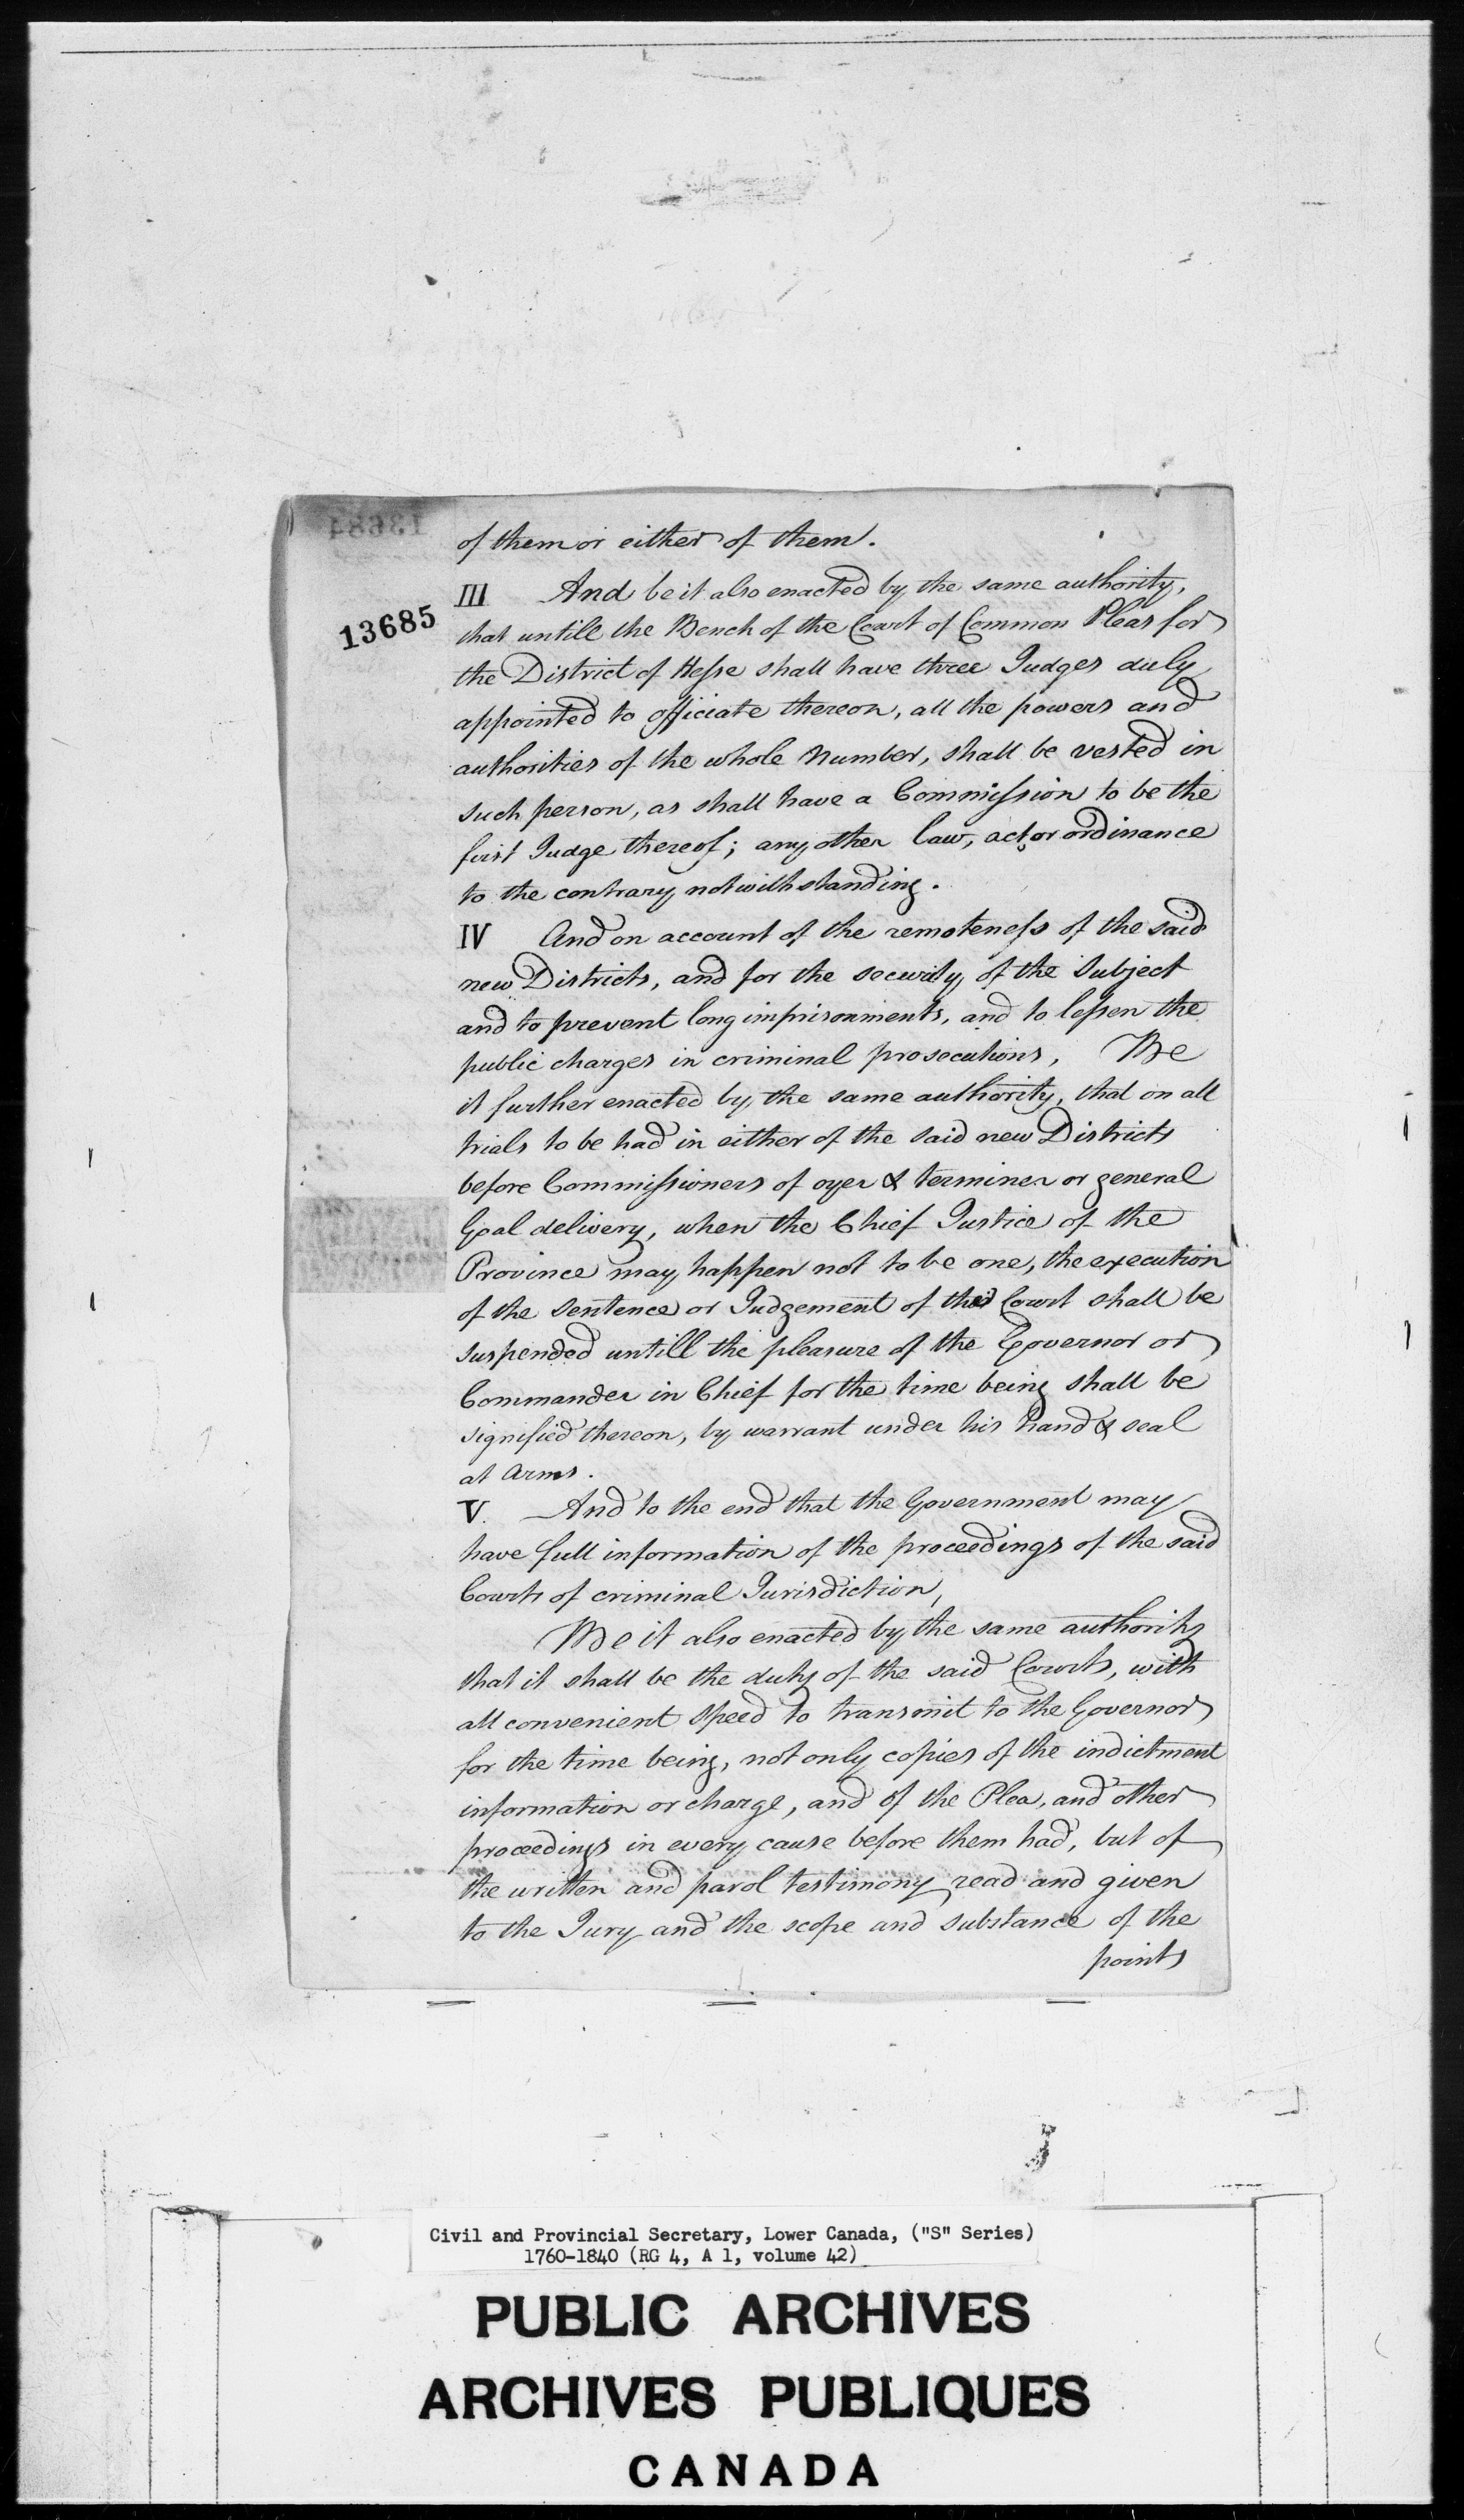 of them or either of them.
III And be it also enacted by the same authority,
13685
that untill the Bench of the Court of Common Pleas for
the District of Hesse shall have three Judges duly
appointed to officiate thereon, all the powers and
authorities of the whole Number, shall be vested in
such person, as shall have a Commission to be the
first Judge thereof; any other law, act, or ordinance
to the contrary notwithstanding.
IV And on account of the remoteness of the said
new Districts, and for the security of the Subject
and to prevent long imprisonments, and to lessen the
public charges in criminal prosecutions, Be
it further enacted by the same authority, that on all
trials to be had in either of the said new Districts
before Commissioners of oyer & terminer or general
Goal delivery, when the Chief Justice of the
Province may happen not to be one, the execution
of the sentence or Judgement of the Court shall be
suspended untill the pleasure of the Governor or
Commander in Chief for the time being shall be
signified thereon, by warrant under his hand & seal
at Arms.
V. And to the end that the Government may
have full information of the proceedings of the said
Courts of criminal Jurisdiction,
Be it also enacted by the same authority
that it shall be the duty of the said Courts, with
all convenient speed to transmit to the Governor
for the time being, not only copies of the indictment
information or charge, and of the Plea, and other
proceedings in every cause before them had, but of
the written and parol testimony read and given
to the Jury and the scope and substance of the
points
Civil and Provincial Secretary, Lower Canada, ("S" Series)
1760-1840 (RG 4, A 1, volume 42)
PUBLIC ARCHIVES
ARCHIVES PUBLIQUES
CANADA